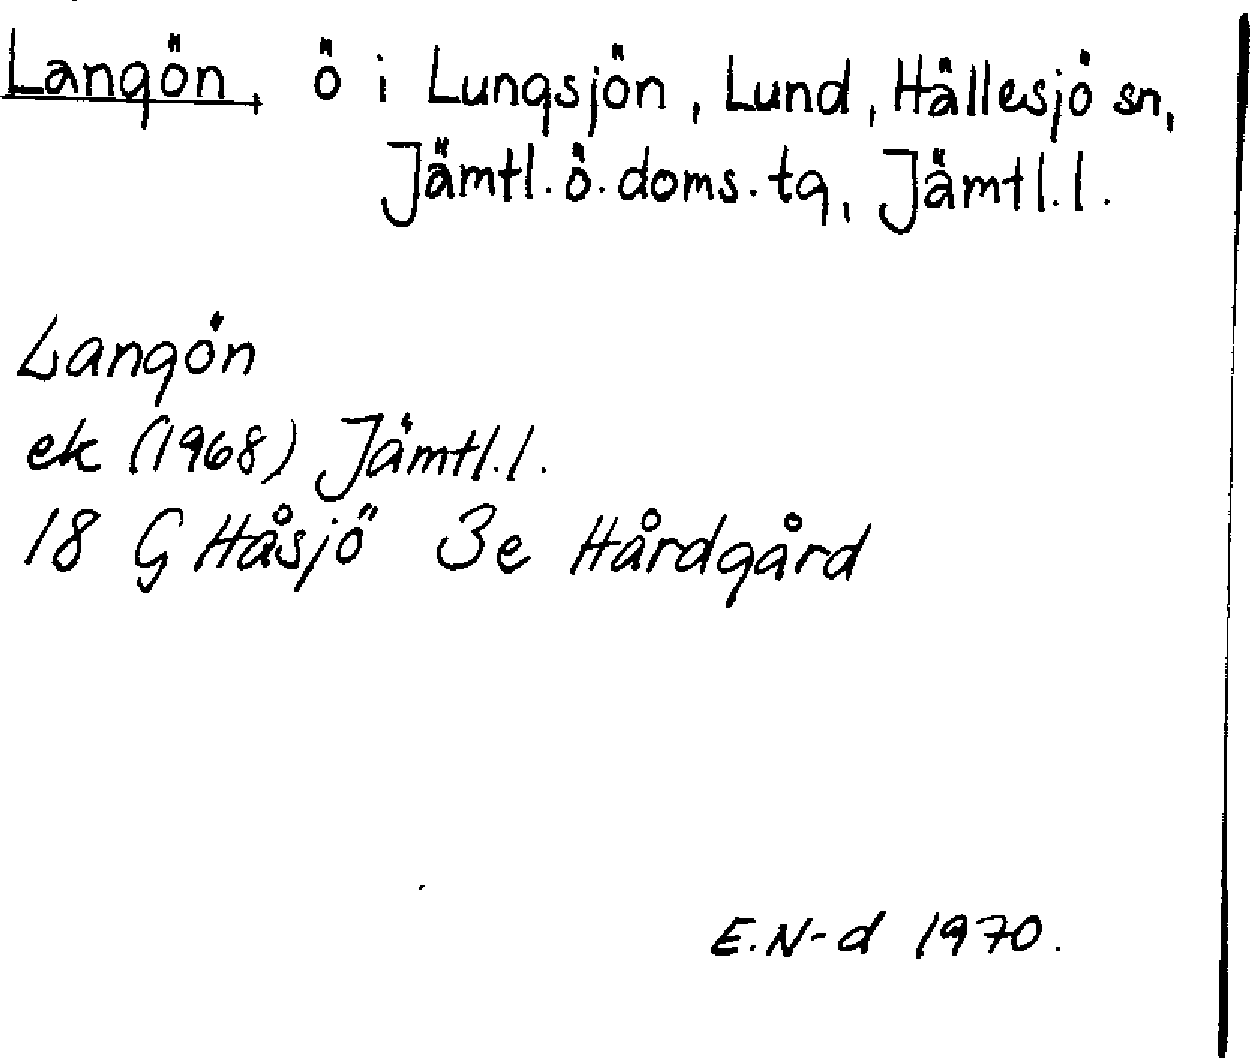 Langön, ö i Lungsjön, Lund, Hällesjö sn,
Jämtl. ö. doms. tg, Jämtl. l.
Langön
ek (1968) Jämtl. l.
18 G Håsjö 3e Hårdgård
E. N-d 1970.